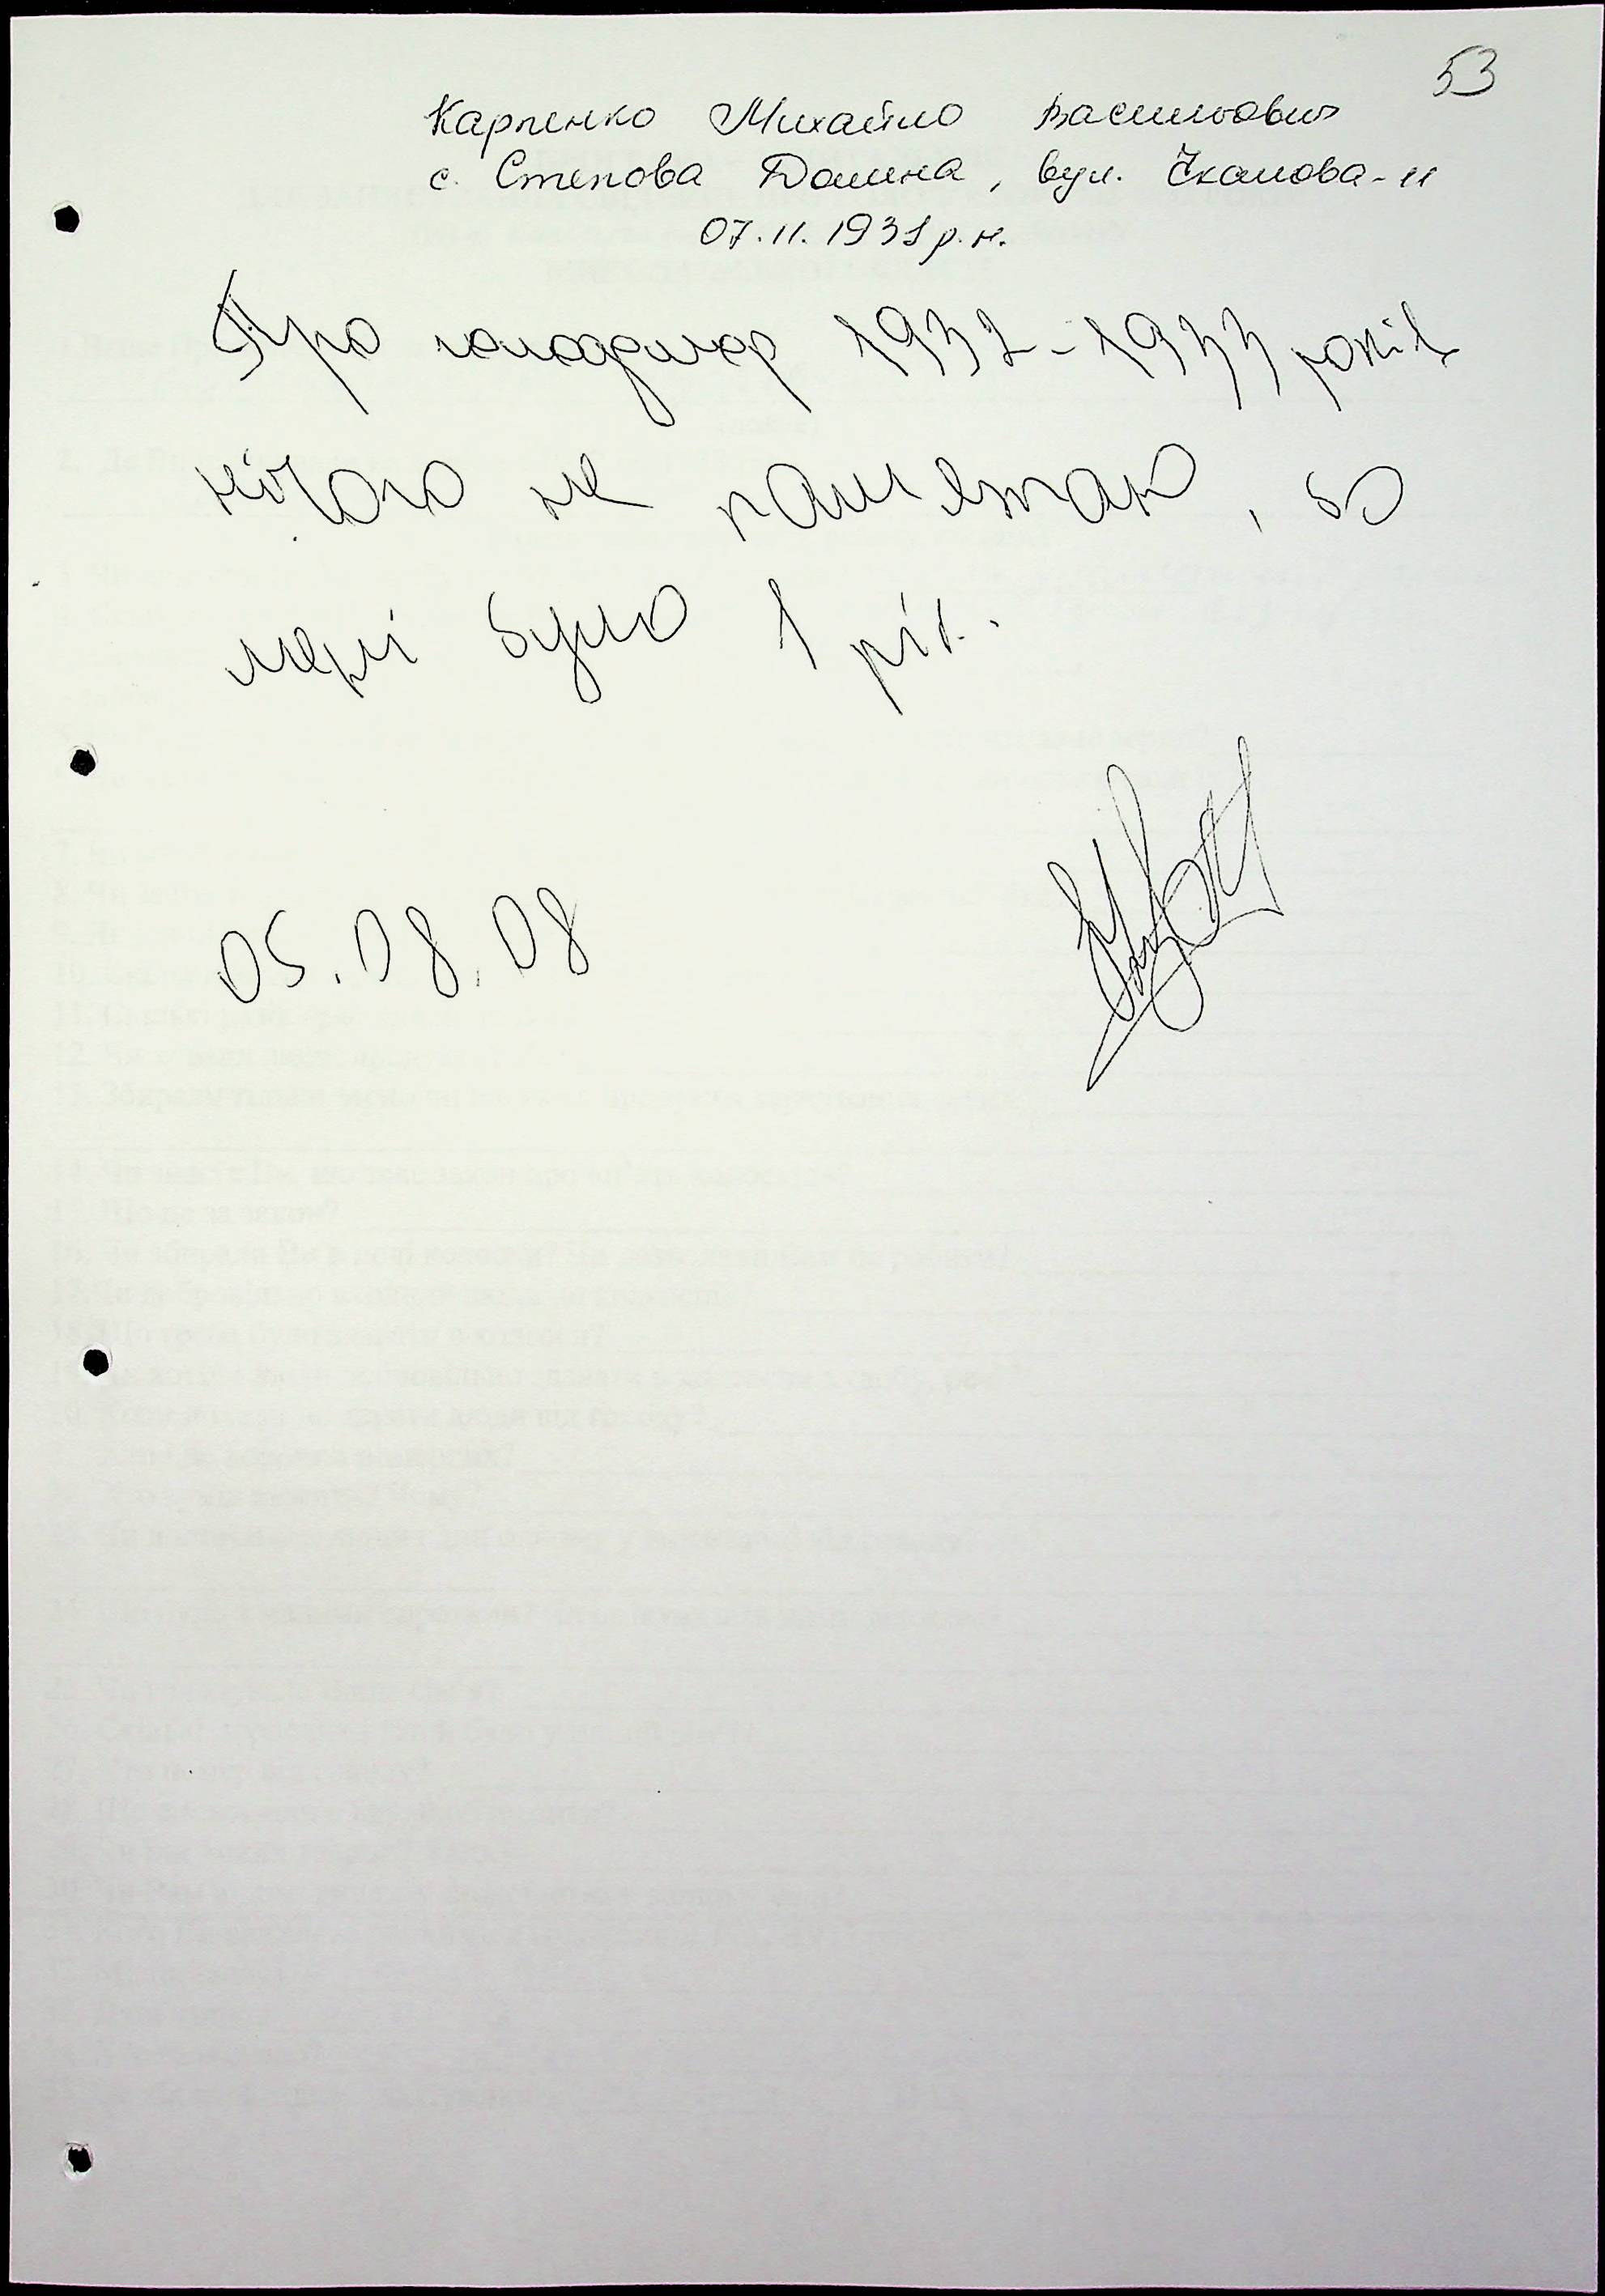 53
Карпенко Михайло Васильович
с. Степова Долина, вул. Чкалова-11
07.11.1931 р.н.
Про голодомор 1932-1933 років
нічого не пам'ятаю, бо
мені було 1 рік.
05.08.08